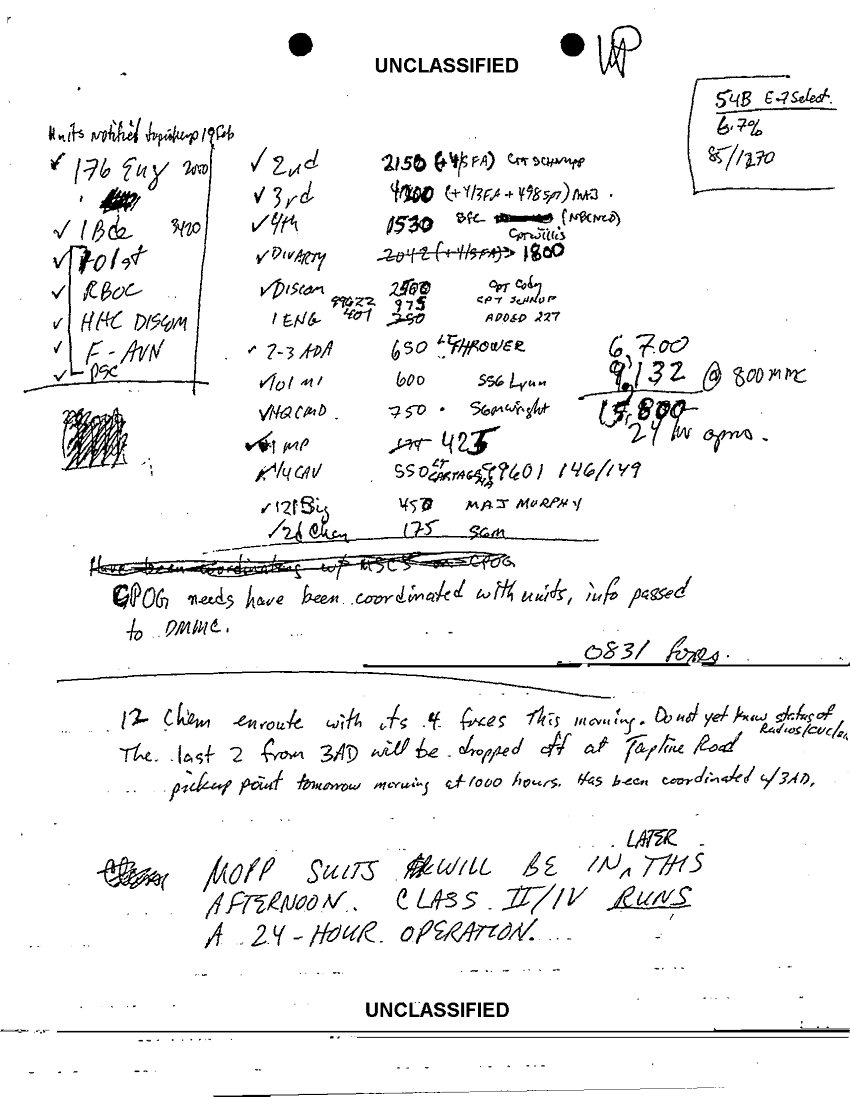 UNCLASSIFIED
54B E-7 Select.
6.7%
85/1270
Units notified to pickup 19 Feb
✓ 176 Eng 2000
✓ 1 Bde 3420
✓ 701st
✓ RBOC
✓ HHC DISCOM
✓ F-AVN
✓ PSC
✓ 2nd 2150 (+4/5FA) CPT SCHNUPP
✓ 3rd 4200 (+4/3FA + 498SPT) MAJ.
✓ 4th 1530 SFC (NBCNCO)
Cpt Willis
✓ DIVARTY 2042 (+4/5FA) 1800
✓ DISCOM 2500 CPT Cody
1 ENG 407 975 CPT SCHNUP
250 ADDED 227
✓ 2-3 ADA 650 LT THROWER
✓ 101 MI 600 SSG Lynn
✓ HQCMD. 750 . SGM Wright
1 MP 425
1/4 CAV 550 LT 99601 146/149
✓ 121 Sig 450 MAJ MURPHY
✓ 12d Chem 175 SGM
6,700
9,132 @ 800 MMC
15,800
24 hr opns.
Have been coordinating w/ MSCS on CPOG
CPOG needs have been coordinated with units, info passed
to DMMC.
0831 foxes.
12 Chem enroute with its 4 foxes This morning. Do not yet know status of
Radios/
The last 2 from 3AD will be dropped off at Tapline Road
pickup point tomorrow morning at 1000 hours. Has been coordinated w/3AD.
LATER
MOPP SUITS WILL BE IN ^ THIS
AFTERNOON. CLASS II/IV RUNS
A 24-HOUR OPERATION.
UNCLASSIFIED